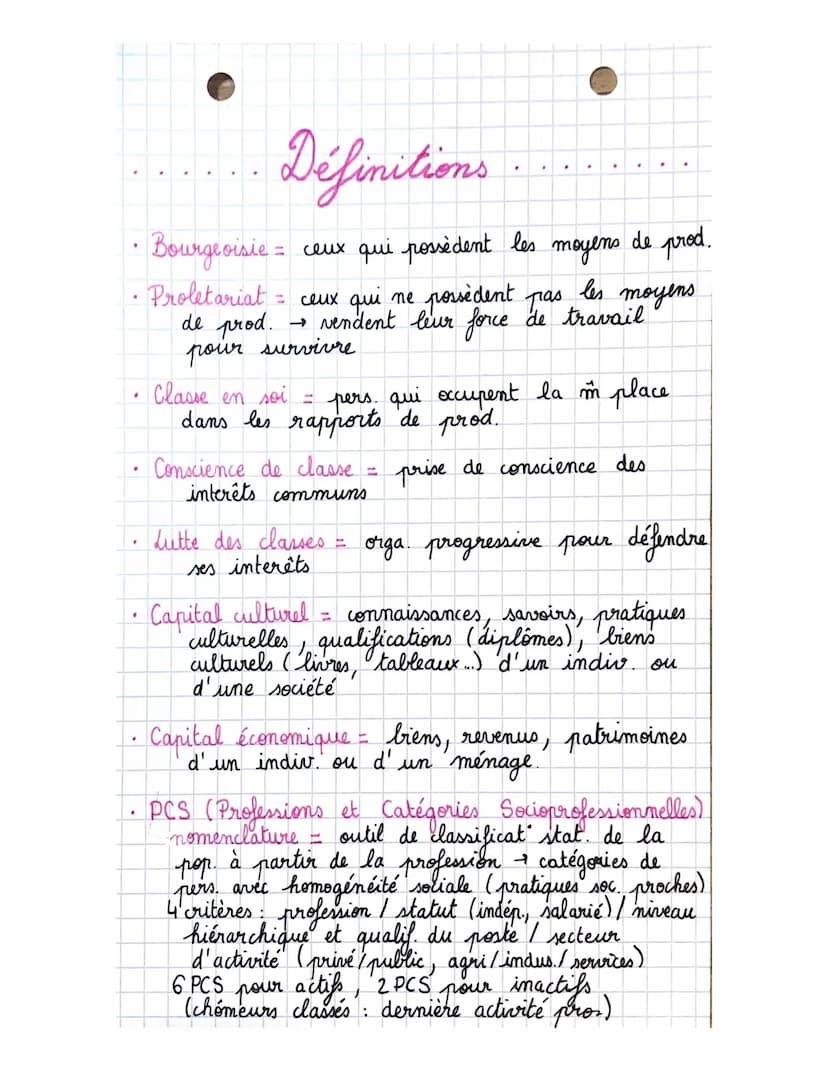 Définitions
• Bourgeoisie = ceux qui possèdent les moyens de prod.
• Proletariat = ceux qui ne possèdent pas les moyens
de prod. → vendent leur force de travail
pour survivre
• Classe en soi = pers. qui occupent la m̂ place
dans les rapports de prod.
• Conscience de classe = prise de conscience des
interêts communs
• Lutte des classes = orga. progressive pour défendre
ses interêts
• Capital culturel = connaissances, savoirs, pratiques
culturelles, qualifications (diplômes), biens
culturels (livres, tableaux...) d'un indiv. ou
d'une société
• Capital économique = biens, revenus, patrimoines
d'un indiv. ou d'un ménage.
• PCS (Professions et Catégories Socioprofessionnelles)
nomenclature = outil de classificat° stat. de la
pop. à partir de la profession → catégories de
pers. avec homogénéité sociale (pratiques soc. proches)
4 critères : profession / statut (indép., salarié) / niveau
hiérarchique et qualif. du poste / secteur
d'activité (privé/public, agri/indus./services)
6 PCS pour actifs, 2 PCS pour inactifs
(chômeurs classés : dernière activité pro.)